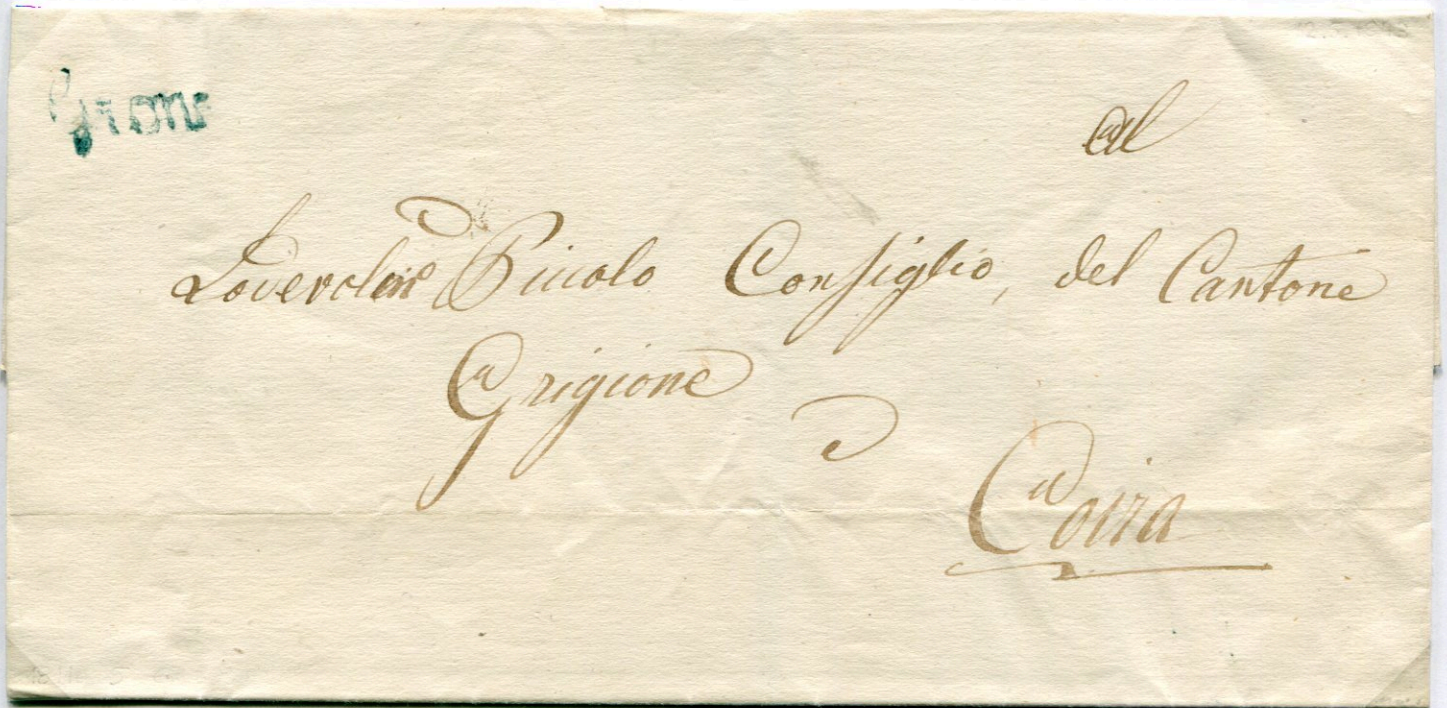 al
Piccolo Consiglio, del Cantone
Grigione
Coira